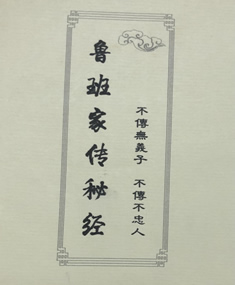 鲁班家传秘经
不傳無義子 不傳不忠人